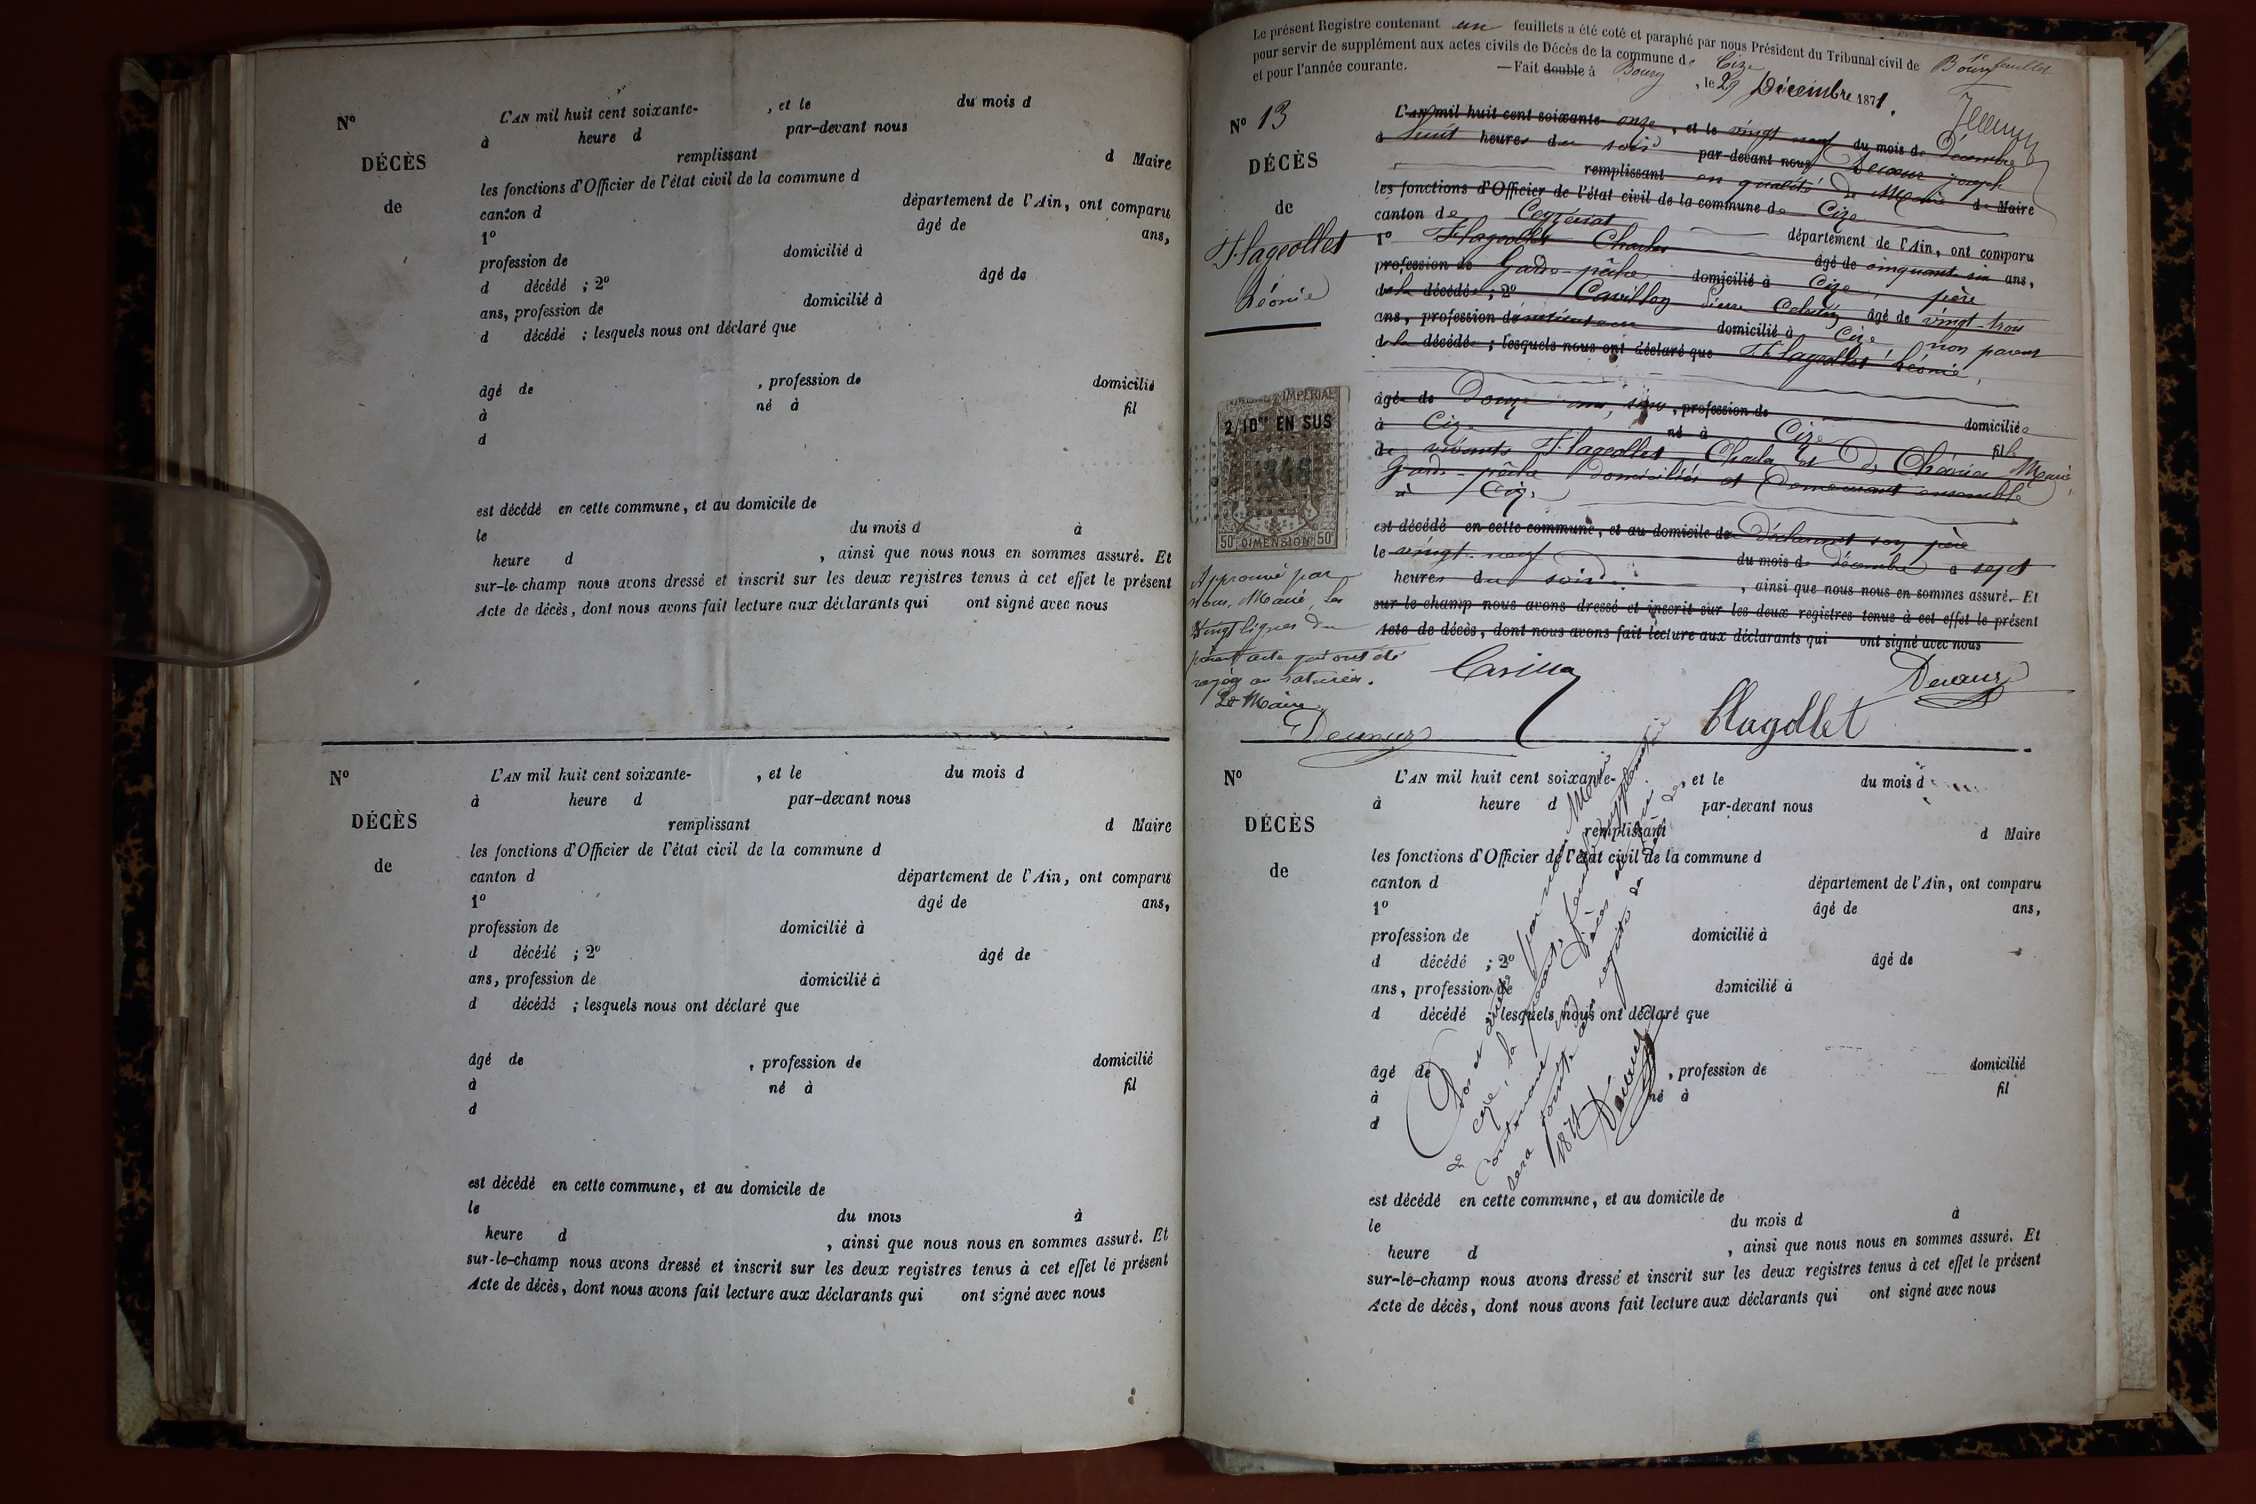 Nº
DÉCÈS
de
L'AN mil huit cent soixante- , et le du mois d
à heure d par-devant nous
remplissant d Maire
les fonctions d'Officier de l'état civil de la commune d
canton d département de l'Ain, ont comparu
1º âgé de ans,
profession de domicilié à
d décédé ; 2º âgé de
ans, profession de domicilié à
d décédé ; lesquels nous ont déclaré que
âgé de , profession de domicilié
à né à fil
d
est décédé en cette commune, et au domicile de
le du mois d à
heure d , ainsi que nous nous en sommes assuré. Et
sur-le-champ nous avons dressé et inscrit sur les deux registres tenus à cet effet le présent
Acte de décès, dont nous avons fait lecture aux déclarants qui ont signé avec nous
Nº
DÉCÈS
de
L'AN mil huit cent soixante- , et le du mois d
à heure d par-devant nous
remplissant d Maire
les fonctions d'Officier de l'état civil de la commune d
canton d département de l'Ain, ont comparu
1º âgé de ans,
profession de domicilié à
d décédé ; 2º âgé de
ans, profession de domicilié à
d décédé ; lesquels nous ont déclaré que
âgé de , profession de domicilié
à né à fil
d
est décédé en cette commune, et au domicile de
le du mois à
heure d , ainsi que nous nous en sommes assuré. Et
sur-le-champ nous avons dressé et inscrit sur les deux registres tenus à cet effet le présent
Acte de décès, dont nous avons fait lecture aux déclarants qui ont signé avec nous
Le présent Registre contenant un feuillets a été coté et paraphé par nous Président du Tribunal civil de Bourg
pour servir de supplément aux actes civils de Décès de la commune de Cize
et pour l'année courante. —Fait double à Bourg , le 29 Décembre 1871.
Nº 13
DÉCÈS
de
Flageollet
Léonie
L'AN mil huit cent soixante-onze, et le vingt neuf du mois de Décembre
à huit heures du soir par-devant nous Devaux joseph
remplissant en qualité de Maire d Maire
les fonctions d'Officier de l'état civil de la commune de Cize
canton de Ceyzériat département de l'Ain, ont comparu
1º Flageollet Charles âgé de cinquante six ans,
profession de Garde-pêche domicilié à Cize, père
de la décédée ; 2º Cavillon Pierre âgé de vingt-trois
ans, profession de instituteur domicilié à Cize non parent
de la décédée ; lesquels nous ont déclaré que Flageollet Léonie,
âgé de Douze ans, , profession de domiciliée
à Cize né à Cize fille
de vivants Flageollet Charles et De Marie,
Garde-pêche domiciliés et demeurant ensemble
à Cize
est décédé en cette commune, et au domicile de déclarant son père
le vingt-neuf du mois de décembre à sept
heures du soir , ainsi que nous nous en sommes assuré. Et
sur-le-champ nous avons dressé et inscrit sur les deux registres tenus à cet effet le présent
Acte de décès, dont nous avons fait lecture aux déclarants qui ont signé avec nous
IMPERIAL
2/10es EN SUS
50c DIMENSION 50c
Approuvé par
nous, Maire, les
Vingt lignes du
présent acte qui ont été
rayées ou raturées.
Le Maire
Devaux
Devaux
Flageollet
Nº
DÉCÈS
de
L'AN mil huit cent soixante- , et le du mois d
à heure d par-devant nous
remplissant d Maire
les fonctions d'Officier de l'état civil de la commune d
canton d département de l'Ain, ont comparu
1º âgé de ans,
profession de domicilié à
d décédé ; 2º âgé de
ans, profession de domicilié à
d décédé ; lesquels nous ont déclaré que
âgé de , profession de domicilié
à né à fil
d
est décédé en cette commune, et au domicile de
le du mois d à
heure d , ainsi que nous nous en sommes assuré. Et
sur-le-champ nous avons dressé et inscrit sur les deux registres tenus à cet effet le présent
Acte de décès, dont nous avons fait lecture aux déclarants qui ont signé avec nous
Clos et arrêté par nous Maire
1871
Devaux